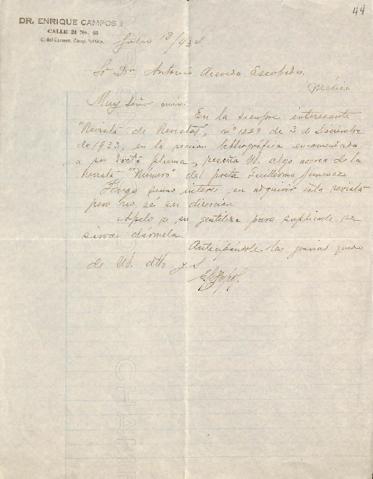 44
DR. ENRIQUE CAMPOS
CALLE 21 No.
C. del Carmen, Camp. México.
Sr Dn. Antonio Acevedo Escobedo.
México
Muy Señor mío:
En la siempre interesante
"Revista de Revistas", nº de 3 de
de 1933, en la sección bibliográfica encomendada
a su docta pluma, reseña Ud. algo acerca de la
Revista "Número" del poeta Guillermo Jiménez
Tengo sumo interés en adquirir esta revista
pero no sé su dirección.
Apelo a su gentileza para suplicarle se
sirva dármela.
Anticipándole las gracias quedo
de Ud. atto y S.